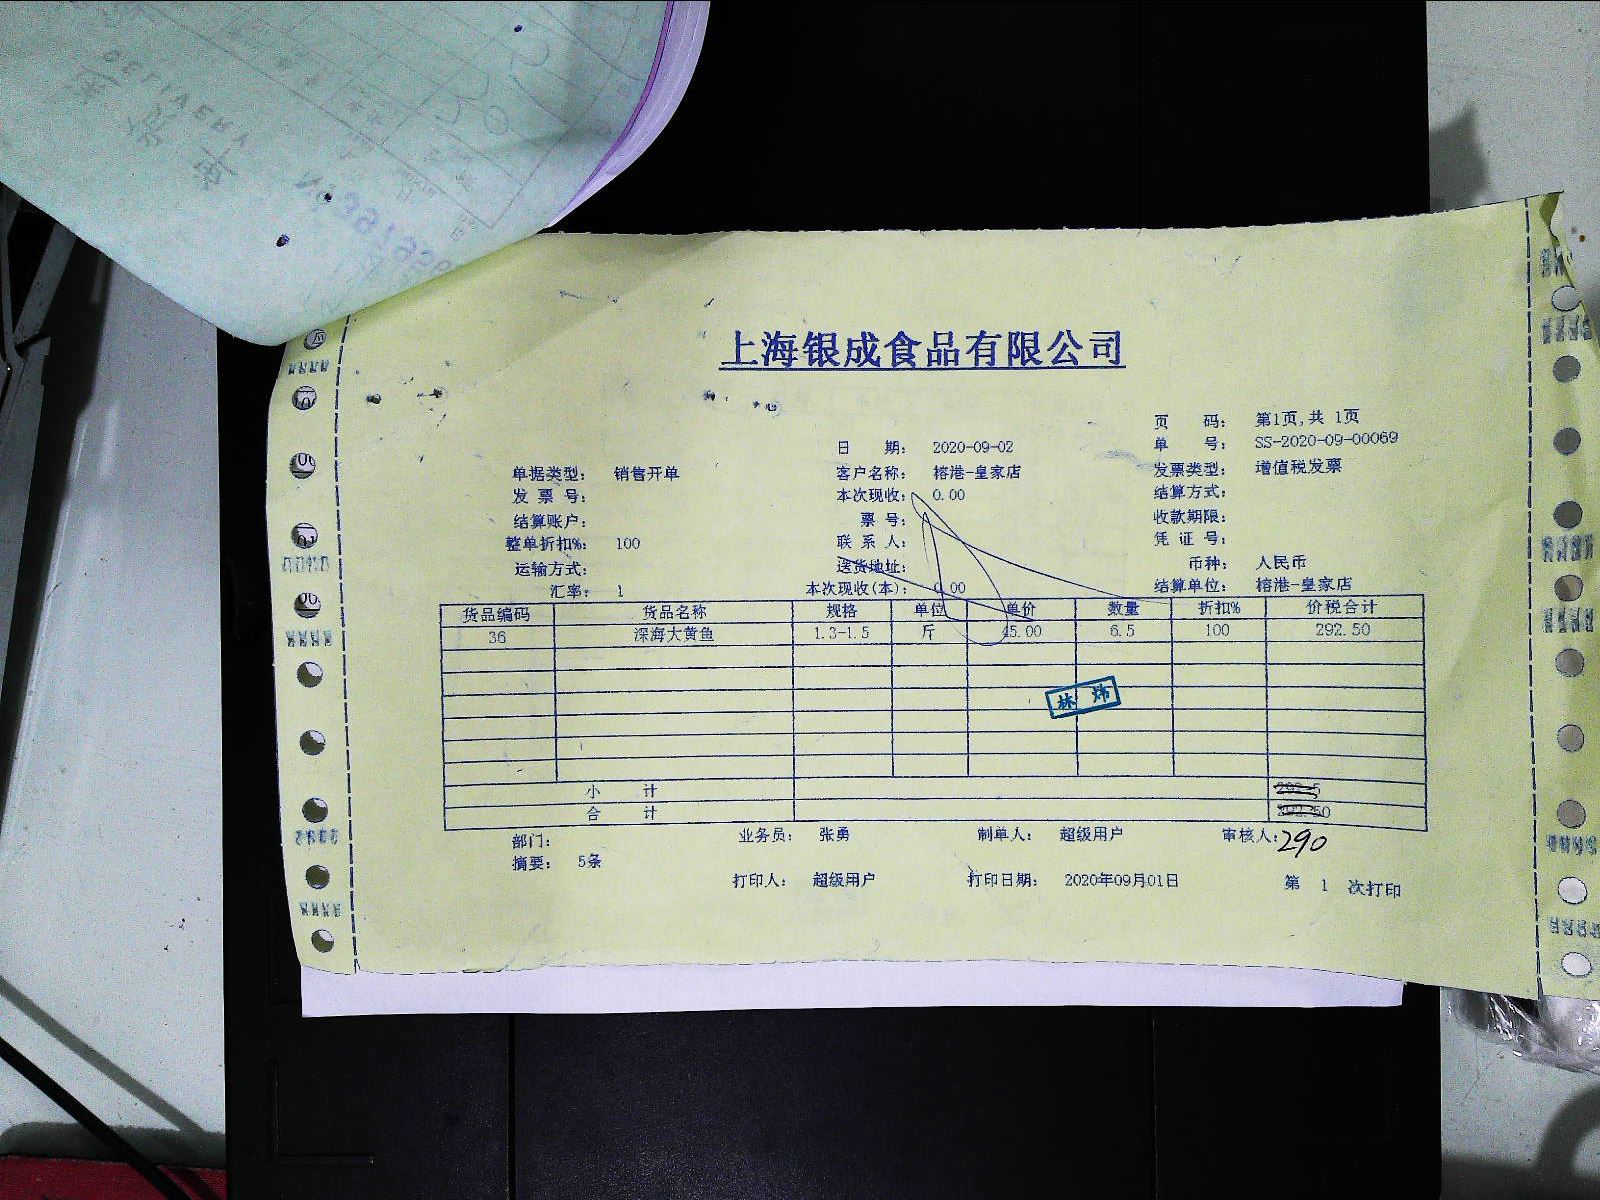 上海银成食品有限公司
页 码: 第1页,共 1页
日 期: 2020-09-02 单 号: SS-2020-09-00069
单据类型: 销售开单 客户名称: 榕港-皇家店 发票类型: 增值税发票
发 票 号: 本次现收: 0.00 结算方式:
结算账户: 票 号: 收款期限:
整单折扣%: 100 联 系 人: 凭 证 号:
运输方式: 送货地址: 币种: 人民币
汇率: 1 本次现收(本): 0.00 结算单位: 榕港-皇家店
货品编码 货品名称 规格 单位 单价 数量 折扣% 价税合计
36 深海大黄鱼 1.3-1.5 斤 45.00 6.5 100 292.50
林 炜
小 计
合 计
部门: 业务员: 张勇 制单人: 超级用户 审核人: 290
摘要: 5条
打印人: 超级用户 打印日期: 2020年09月01日 第 1 次打印